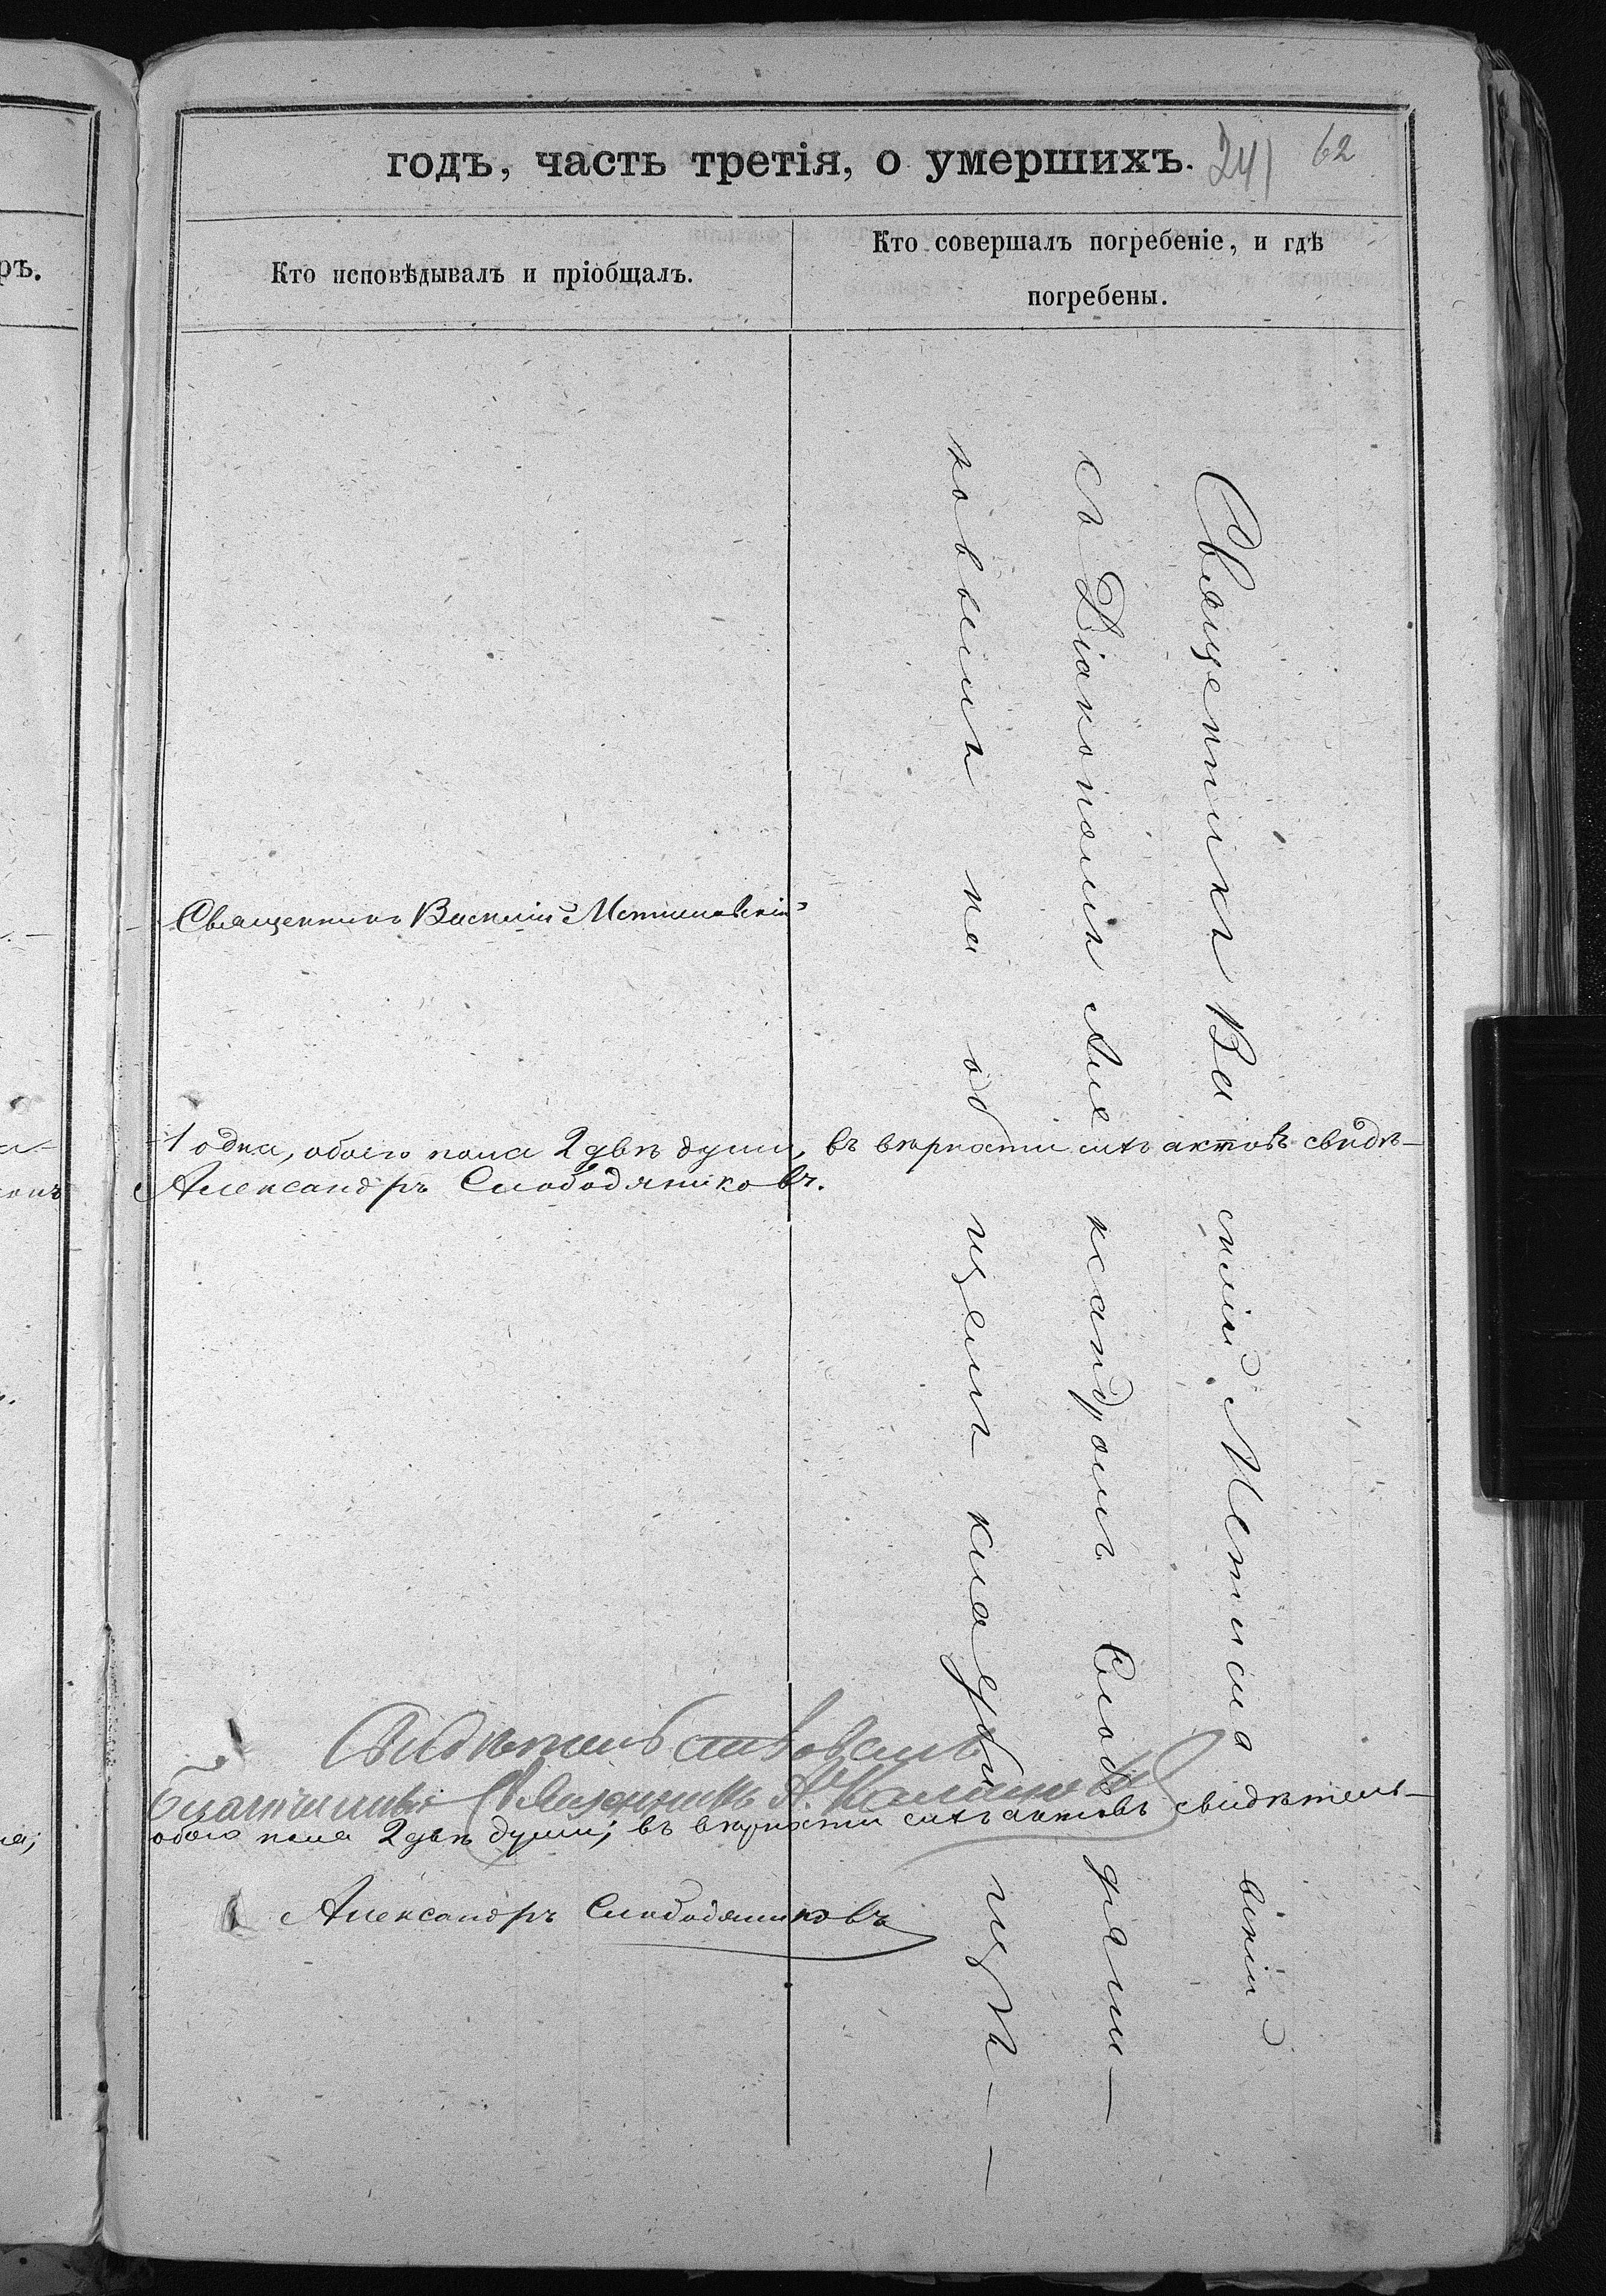 годъ, часть третія, о умершихъ.
241 62
Кто исповѣдывалъ и пріобщалъ.
Кто совершалъ погребеніе, и гдѣ
погребены.
ръ.
Священникъ Василій
1 одна, обоего пола 2 двѣ души, въ вѣрности сихъ актовъ свидѣ-
Александръ Слободяниковъ.
Священникъ Василій
съ Діакономъ Александромъ Слободяни-
ковымъ на общемъ кладбищѣ —
Свидѣтельствовалъ
Благочинный Священникъ
обоего пола 2 двѣ души; въ вѣрности сихъ актовъ свидѣтель-
Александръ Слободяниковъ